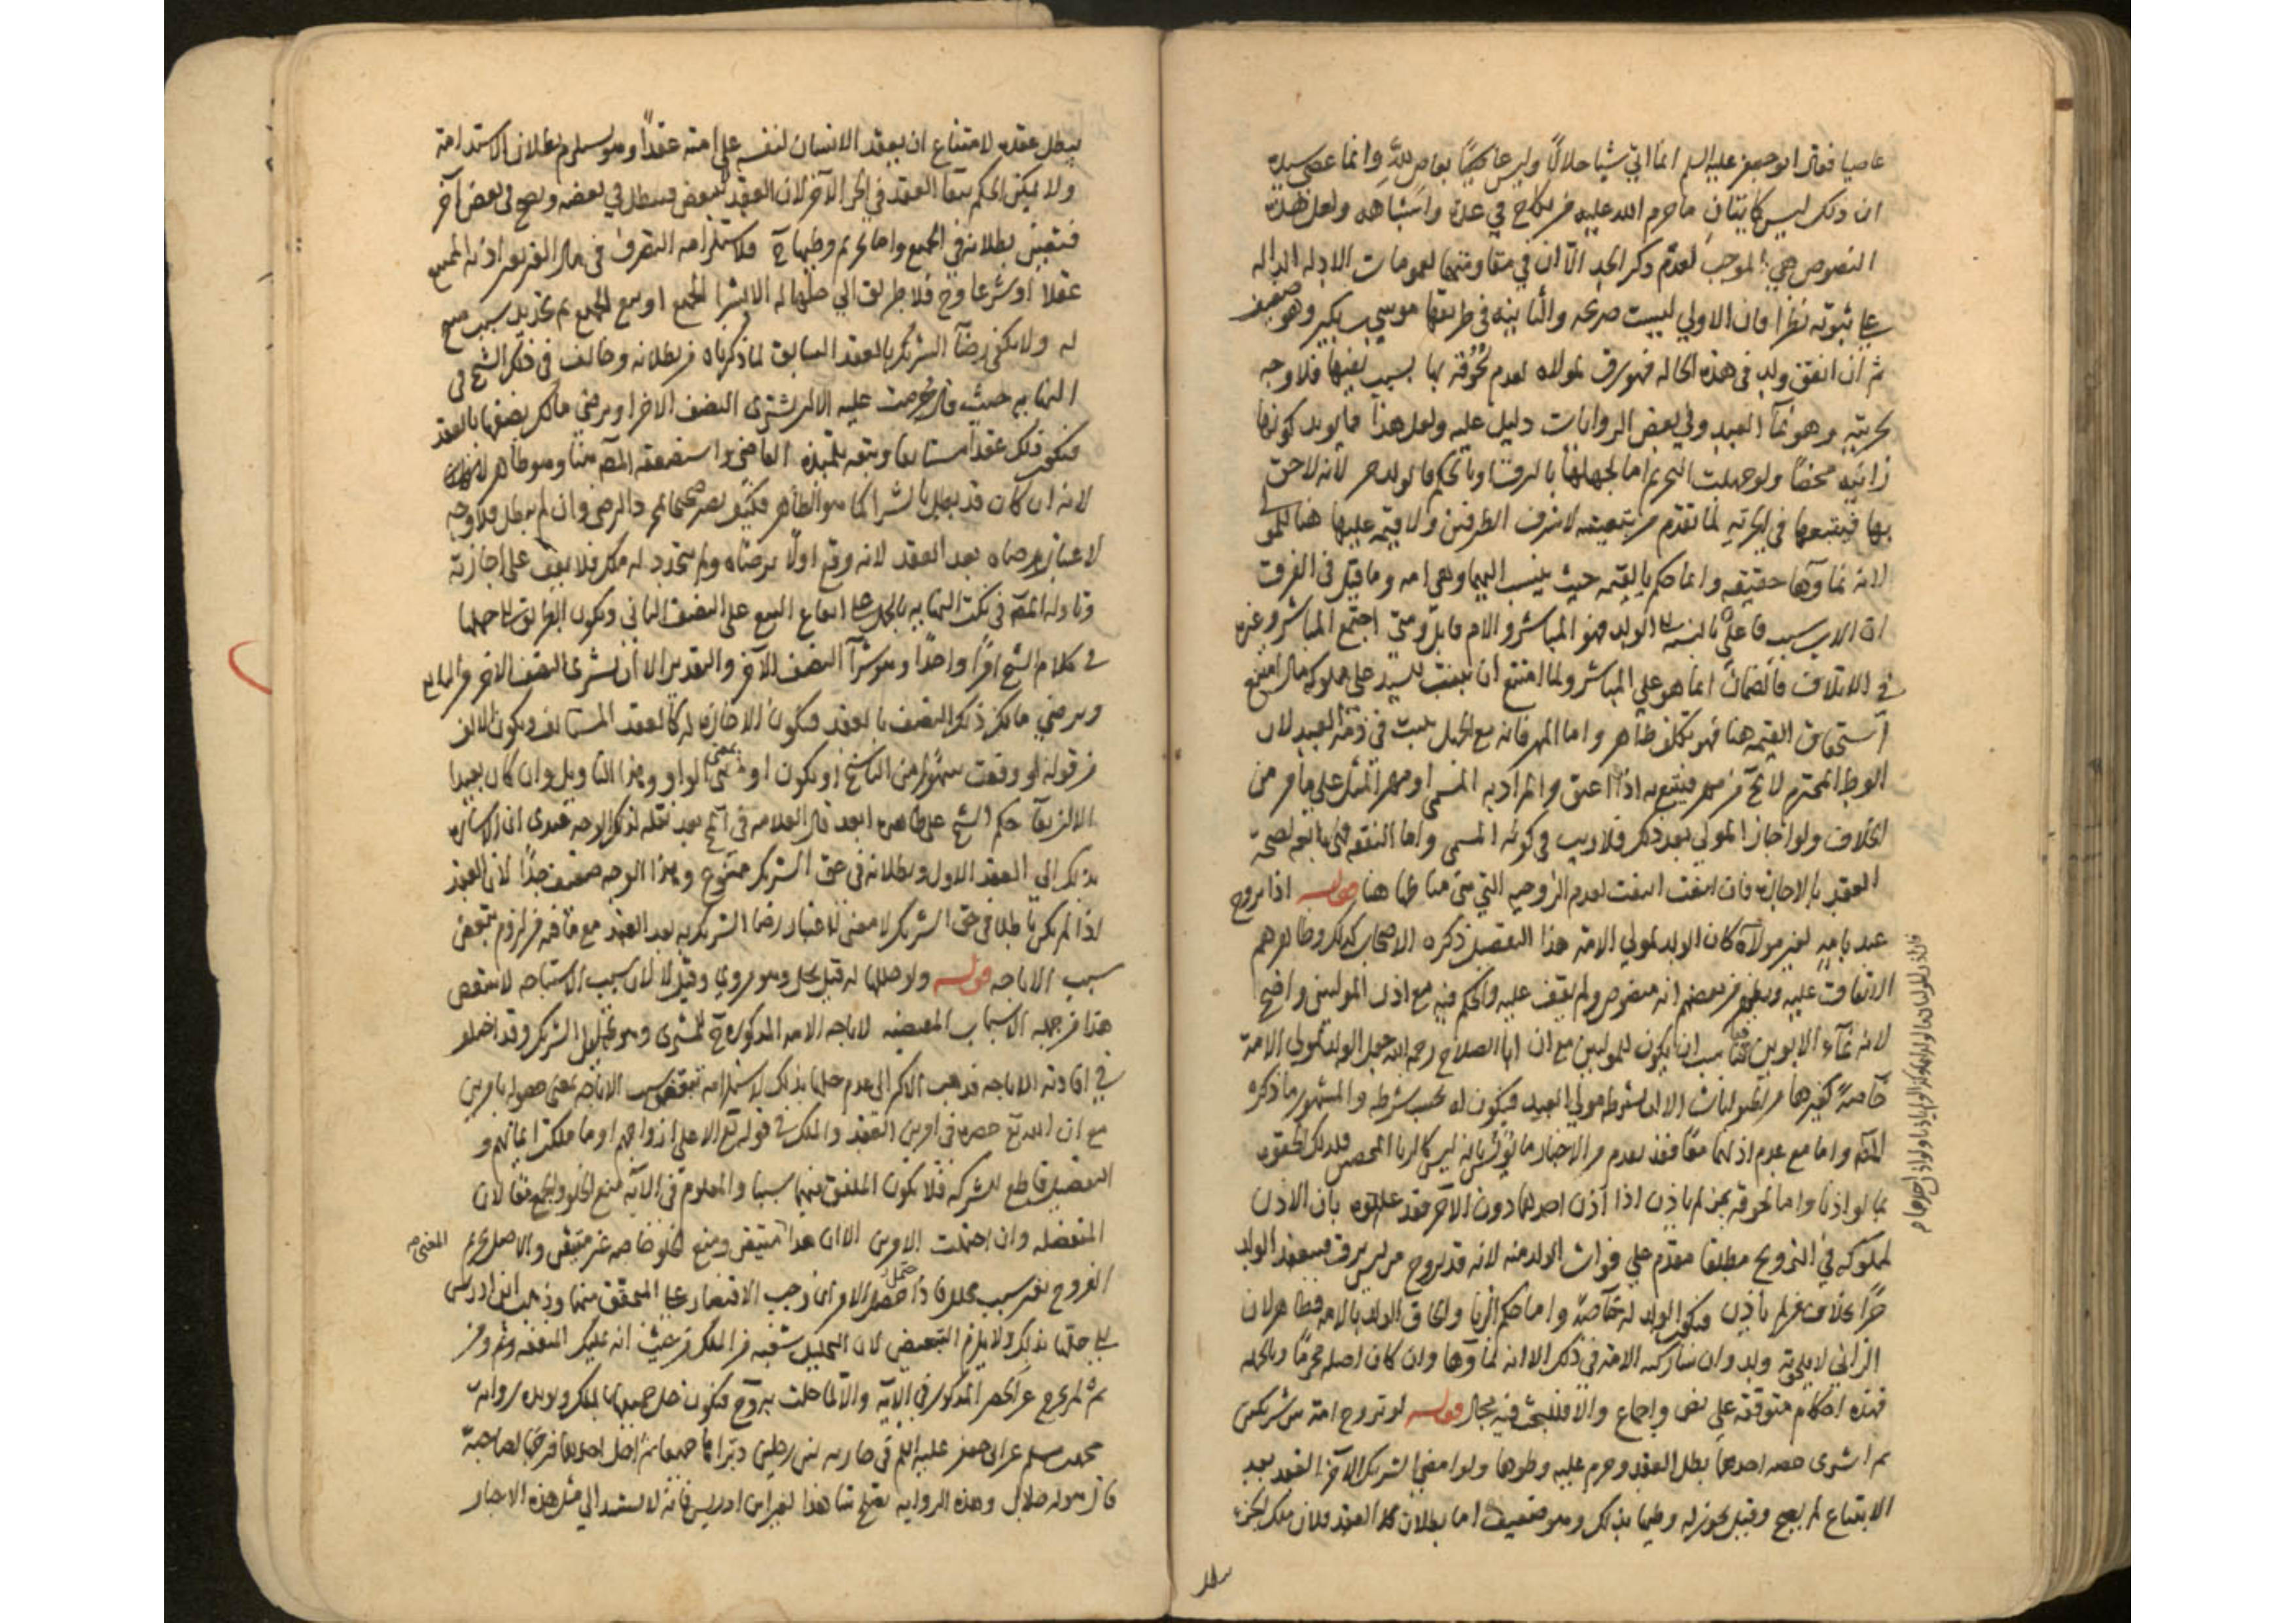 عاصيا فقال ابو جعفر عليه السلم انما اتي شيا حلالاً وليس بعاص لله وانما عصي سيده
ان ذلك ليس كاتيان ما حرم الله عليه من نكاح في عدة واشباهه ولعل هذه
النصوص هي الموجب لعدم ذكر الحد الا ان في مقاومتها لعمومات الادله الداله
علي ثبوته نظرا فان الاولي ليست صريحه والثانيه في طريقها موسي بن بكير وهو ضعيف
ثم ان اتفق ولد في هذه الحاله فهو رق لمولاه لعدم لحوقه بها بسبب بغيها فلا وجه
لحريته وهو نمآ العبد وفي بعض الروايات دليل عليه ولعل هذا مايويد كونها
زانيه محضا ولو جهلت التحريم اما لجهلها بالرق او بالحكم فالولد حر لانه لاحق
بها فيتبعها في الحريه لما تقدم من تبعيته لاشرف الطرفين ولا قيمه عليها هنا للمولي
لانه نماوها حقيقه وانما حكم بالقيمه حيث ينسب اليها وهي امه وما قيل في الفرق
ان الاب سبب فاعلي بالنسبه الي الولد فهو المباشر والام قابل ومتي اجتمع المباشر وغيره
في الاتلاف فالضمان انما هو علي المباشر ولما امتنع ان يثبت للسيد علي مملوكه مال امتنع
استحقاق القيمه هنا فهو تكلف ظاهر واما المهر فانه مع الجهل يثبت في ذمة العبد لان
الوطئ المحترم لا يخ من مهر فيتبع به اذا اعتق والمراد به المسمي او مهر المثل علي ما مر من
الخلاف ولو اجاز المولي بعد ذكر فلا ريب في كونه المسمي واما النفقه فهي تابعه لصحة
العقد بالاجازه فان انتفت انتفت لعدم الزوجيه التي هي مناطها هنا قوله اذا تزوج
عبد بامه لغير مولاه كان الولد لمولي الامه هذا التفصيل ذكره الاصحاب كذلك وظاهرهم
الاتفاق عليه ويظهر من بعضهم انه منصوص ولم نقف عليه والحكم فيه مع اذن الموليين واضح
لانه نماء الابوين فناسب ان يكون للموليين مع ان ابا الصلاح رحمه الله جعل الولد لمولي الامة
خاصةً كغيرها من الحيوانات الا ان يشترطه مولي العبد فيكون له بحسب شرطه والمشهور ما ذكره
المص واما مع عدم اذنهما معا فقد تقدم من الاخبار ما يوذن بانه ليس كالزنا المحض فلذلك لحقوه
بما لو اذنا واما لحوقه بمن لم ياذن اذا اذن احدهما دون الآخر فقد عللوه بان الاذن
لمملوكه في التزويج مطلقا مقدم علي فوات الولد منه لانه قد يزوج من ليس برق فينعقد الولد
حرا بخلاف من لم ياذن فيكون الولد له خاصة واما حكم الزنا والحاق الولد بالامه فظاهر لان
الزاني لا يلحق به ولد وان شاركته الامة في ذلك الا انه نماوها وان كان اصله محرما وبالجمله
فهذه احكام متوقفه علي نص واجماع والا فللبحث فيه مجال قوله لو تزوج امة بين شريكين
ثم اشترى حصه احدهما بطل العقد وحرم عليه وطوها ولو امضي الشريك الآخر العقد بعد
الابتياع لم يصح وقيل يجوز له وطيها بذلك وهو ضعيف اما بطلان العقد فلان ملك الجزء
يبطل عقده لامتناع ان يعقد الانسان لنفسه علي امته عقداً وهو يستلزم بطلان الاستدامة
ولا يمكن الحكم ببقآ العقد في الجزء الآخر لان العقد لا يتبعض فيبطل في بعضه ويصح في بعض آخر
فتعين بطلانه في الجميع واما تحريم وطيها ح فلاستلزامه التصرف في مال الغير بغير اذنه الممتنع
عقلا او شرعا وح فلا طريق الي حلها له الا بشرا الجميع او بيع الجميع ثم تجديد سبب مبيح
له ولا يكفي رضآ الشريك بالعقد السابق لما ذكرناه من بطلانه وخالف في ذلك الشيخ في
النهايه حيث قال حرمت عليه الا ان يشتري النصف الاخر او يرضي مالك نصفها بالعقد
فيكون ذلك عقدا مستانفا وتبعه تلميذه القاضي واستضعفه المص هنا وهو ظاهر
لانه ان كان قد بطل بالشرا كما هو الظاهر فكيف يصير صحيحا بمجرد الرضى وان لم يبطل فلا وجه
لاعتبار رضاه بعد العقد لانه وقع اولا برضاه ولم يتجدد له ملك فلا يقف علي اجازته
وتاوله المص في نكت النهايه بالحمل علي ايقاع البيع علي النصف الثاني ويكون
في كلام الشيخ امراً واحداً وهو شرآ النصف الآخر والتقدير الا ان يشتري النصف الاخر من البايع
ويرضي مالك ذلك النصف بالعقد فيكون الاجازه له كالعقد المستانف ويكون الالف
من قوله او وقعت سهوا من الناسخ او يكون او بمعنى الواو وهذا التاويل وان كان بعيدا
الا ان بقآ حكم الشيخ علي ظاهره ابعد قال العلامه في بعد نقله لذلك الوجه عندي ان الاشاره
بذلك الي العقد الاول وبطلانه في حق الشريك ممنوع وهذا الوجه ضعيف جدا لان العقد
اذا لم يكن باطلا في حق الشريك لا معنى لاعتبار رضا الشريك به بعد العقد مع ما فيه من لزوم تبعض
سبب الاباحه قوله ولو حللها له قيل يحل وهو مروي وقيل لا لان سبب الاستباحه لا يتبعض
هذا من جمله الاسباب المقتضيه لاباحه الامه المذكوره للمشتري وهو تحليل الشريك وقد اختلف
في افادته الاباحه فذهب الاكثر الي عدم حلها بذلك لاستلزامه تبعض سبب الاباحه بمعنى حصوله بامرين
مع ان الله تع حصره في امرين العقد والملك في قوله تع الا علي ازواجهم او ما ملكت ايمانهم و
التفصيل قاطع للشركه فلا يكون الملفق منهما سببا والمعلوم في الآيه منع الخلو والجمع معا لان
المنفصله وان احتملت الامرين الا ان هذا متيقن ومنع الخلو خاصه غير متيقن والاصل تحريم
الفروج بغير سبب محلل فاذا احتمل الامران وجب الاقتصار علي المتحقق منهما وذهب ابن ادريس
الي حلها بذلك ولا يلزم التبعيض لان التحليل شعبه من الملك من حيث انه تمليك المنفعه ومن ثم
لم يخرج عن الحصر المذكور في الآيه والا لما حلت به وح فيكون حل جميعها بالملك ويويده رواية
محمد بن مسلم عن ابي جعفر عليه السلم في جاريه بين رجلين دبراها جميعا ثم احل احدهما فرجها لصاحبه
قال هو له حلال وهذه الروايه تصلح شاهدا لغير ابن ادريس فانه لا يستند الي مثل هذه الاخبار